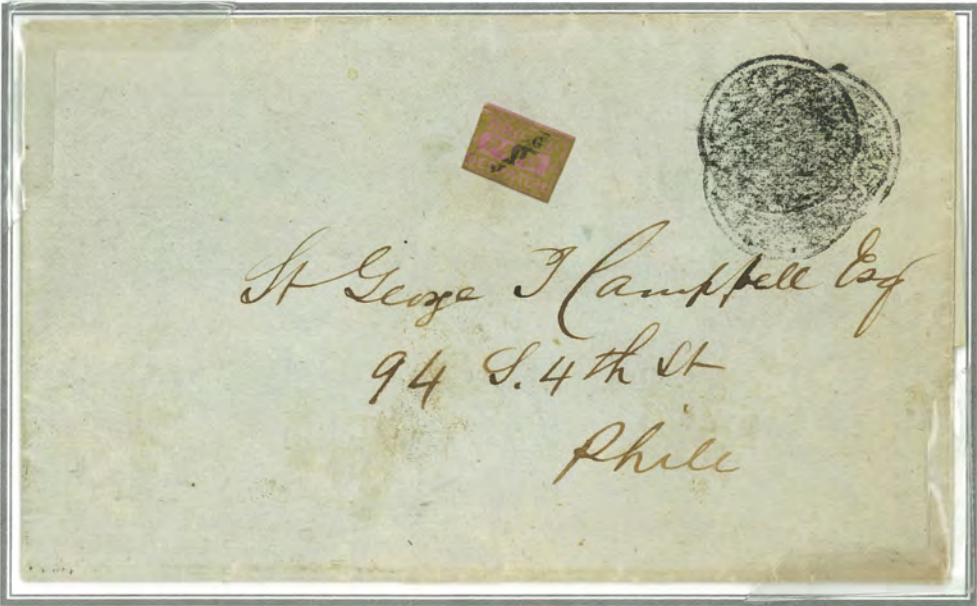 St George T Campbell Esq
94 S. 4th St
Phila